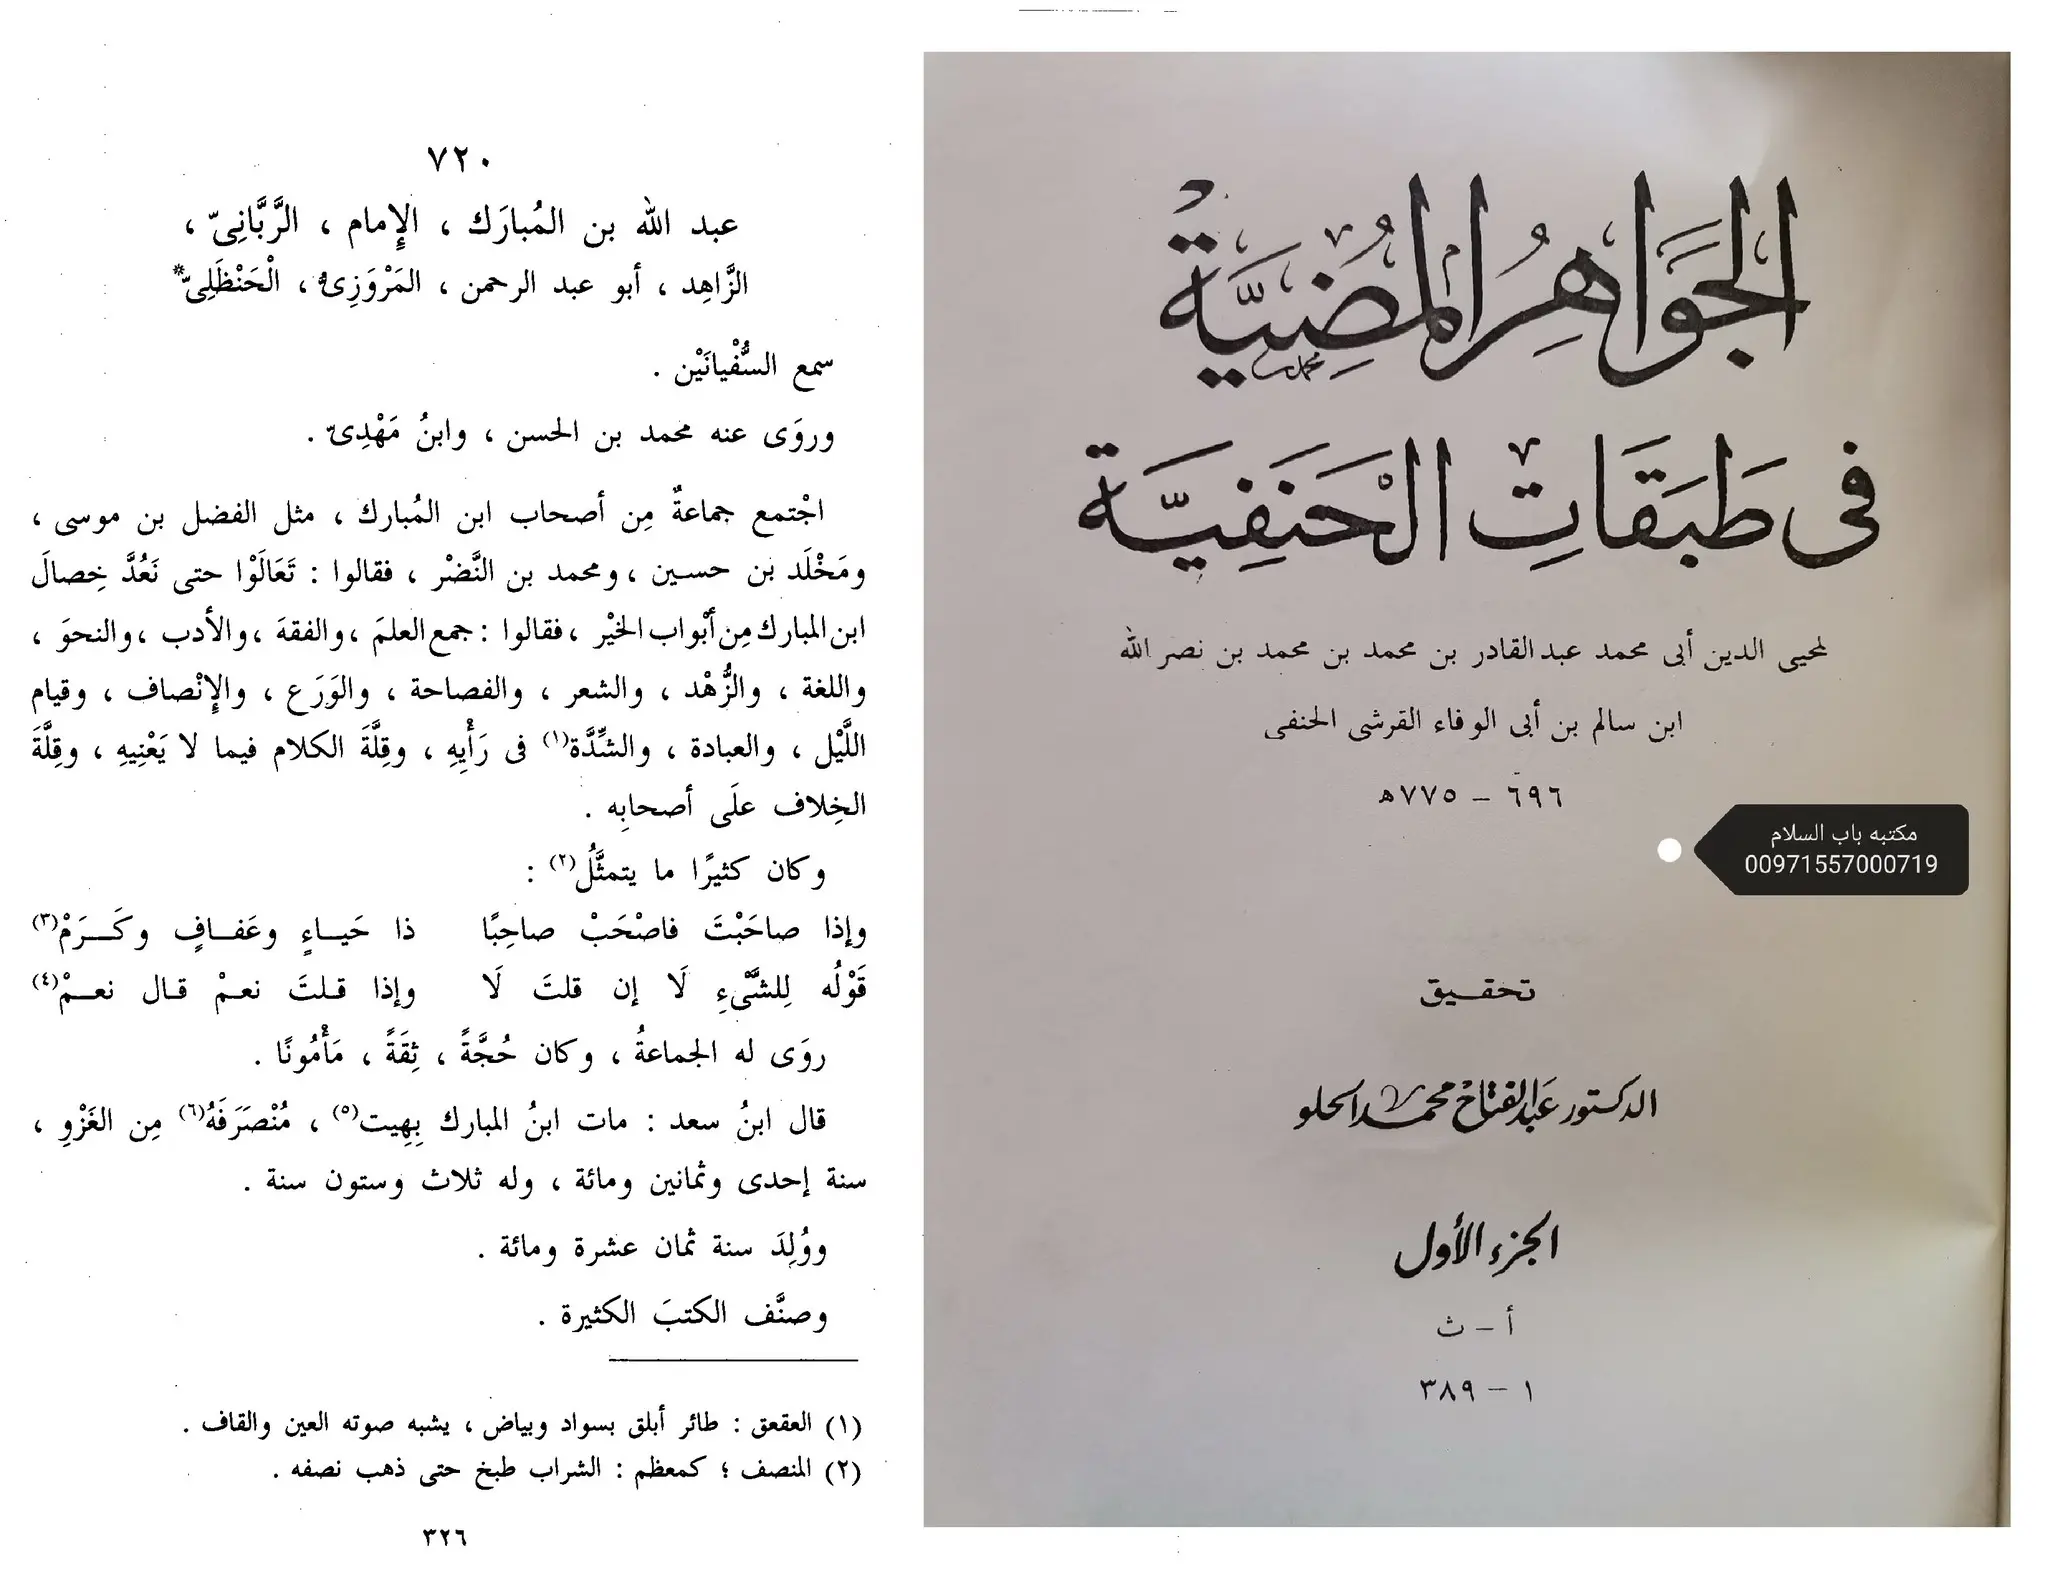 الجَوَاهِرُ المُضِيَّة
فى طَبَقَاتِ الْحَنَفِيَّة
لمحيى الدين أبى محمد عبد القادر بن محمد بن محمد بن نصر الله
ابن سالم بن أبى الوفاء القرشى الحنفى
٦٩٦ – ٧٧٥ه
مكتبه باب السلام
00971557000719
تحقيق
الدكتور عبد الفتاح محمد الحلو
الجزء الأول
أ – ث
١ – ٣٨٩
٧٢٠
عبد الله بن المُبارَك ، الإِمام ، الرَّبَّانِىّ ،
الزَّاهِد ، أبو عبد الرحمن ، المَرْوَزِىُّ ، الْحَنْظَلِىّ*
سمع السُّفْيانَيْن .
وروَى عنه محمد بن الحسن ، وابنُ مَهْدِىّ .
اجْتمع جماعةٌ مِن أصحاب ابن المُبارك ، مثل الفضل بن موسى ،
ومَخْلَد بن حسين ، ومحمد بن النَّضْر ، فقالوا : تَعَالَوْا حتى نَعُدَّ خِصالَ
ابن المبارك مِن أبْواب الخيْر ، فقالوا : جمع العلمَ ، والفقهَ ، والأدب ، والنحوَ ،
واللغة ، والزُّهْد ، والشعر ، والفصاحة ، والوَرَع ، والإنْصاف ، وقيام
اللَّيْل ، والعبادة ، والشِّدَّة(١) فى رَأْيِهِ ، وقِلَّةَ الكلام فيما لا يَعْنِيهِ ، وقِلَّةَ
الخِلاف علَى أصحابِه .
وكان كثيرًا ما يتمثَّلُ(٢) :
وإذا صاحَبْتَ فاصْحَبْ صاحِبًا ذا حَيـاءٍ وعَفـافٍ وكَـرَمْ(٣)
قَوْلُه لِلشَّىْءِ لَا إن قلتَ لَا وإذا قـلتَ نعـمْ قـال نعـمْ(٤)
روَى له الجماعةُ ، وكان حُجَّةً ، ثِقَةً ، مَأْمُونًا .
قال ابنُ سعد : مات ابنُ المبارك بِهِيت(٥) ، مُنْصَرَفَهُ(٦) مِن الغَزْوِ ،
سنة إحدى وثمانين ومائة ، وله ثلاث وستون سنة .
ووُلِدَ سنة ثمان عشرة ومائة .
وصنَّف الكتبَ الكثيرة .
(١) العقعق : طائر أبلق بسواد وبياض ، يشبه صوته العين والقاف .
(٢) المنصف ؛ كمعظم : الشراب طبخ حتى ذهب نصفه .
٣٢٦